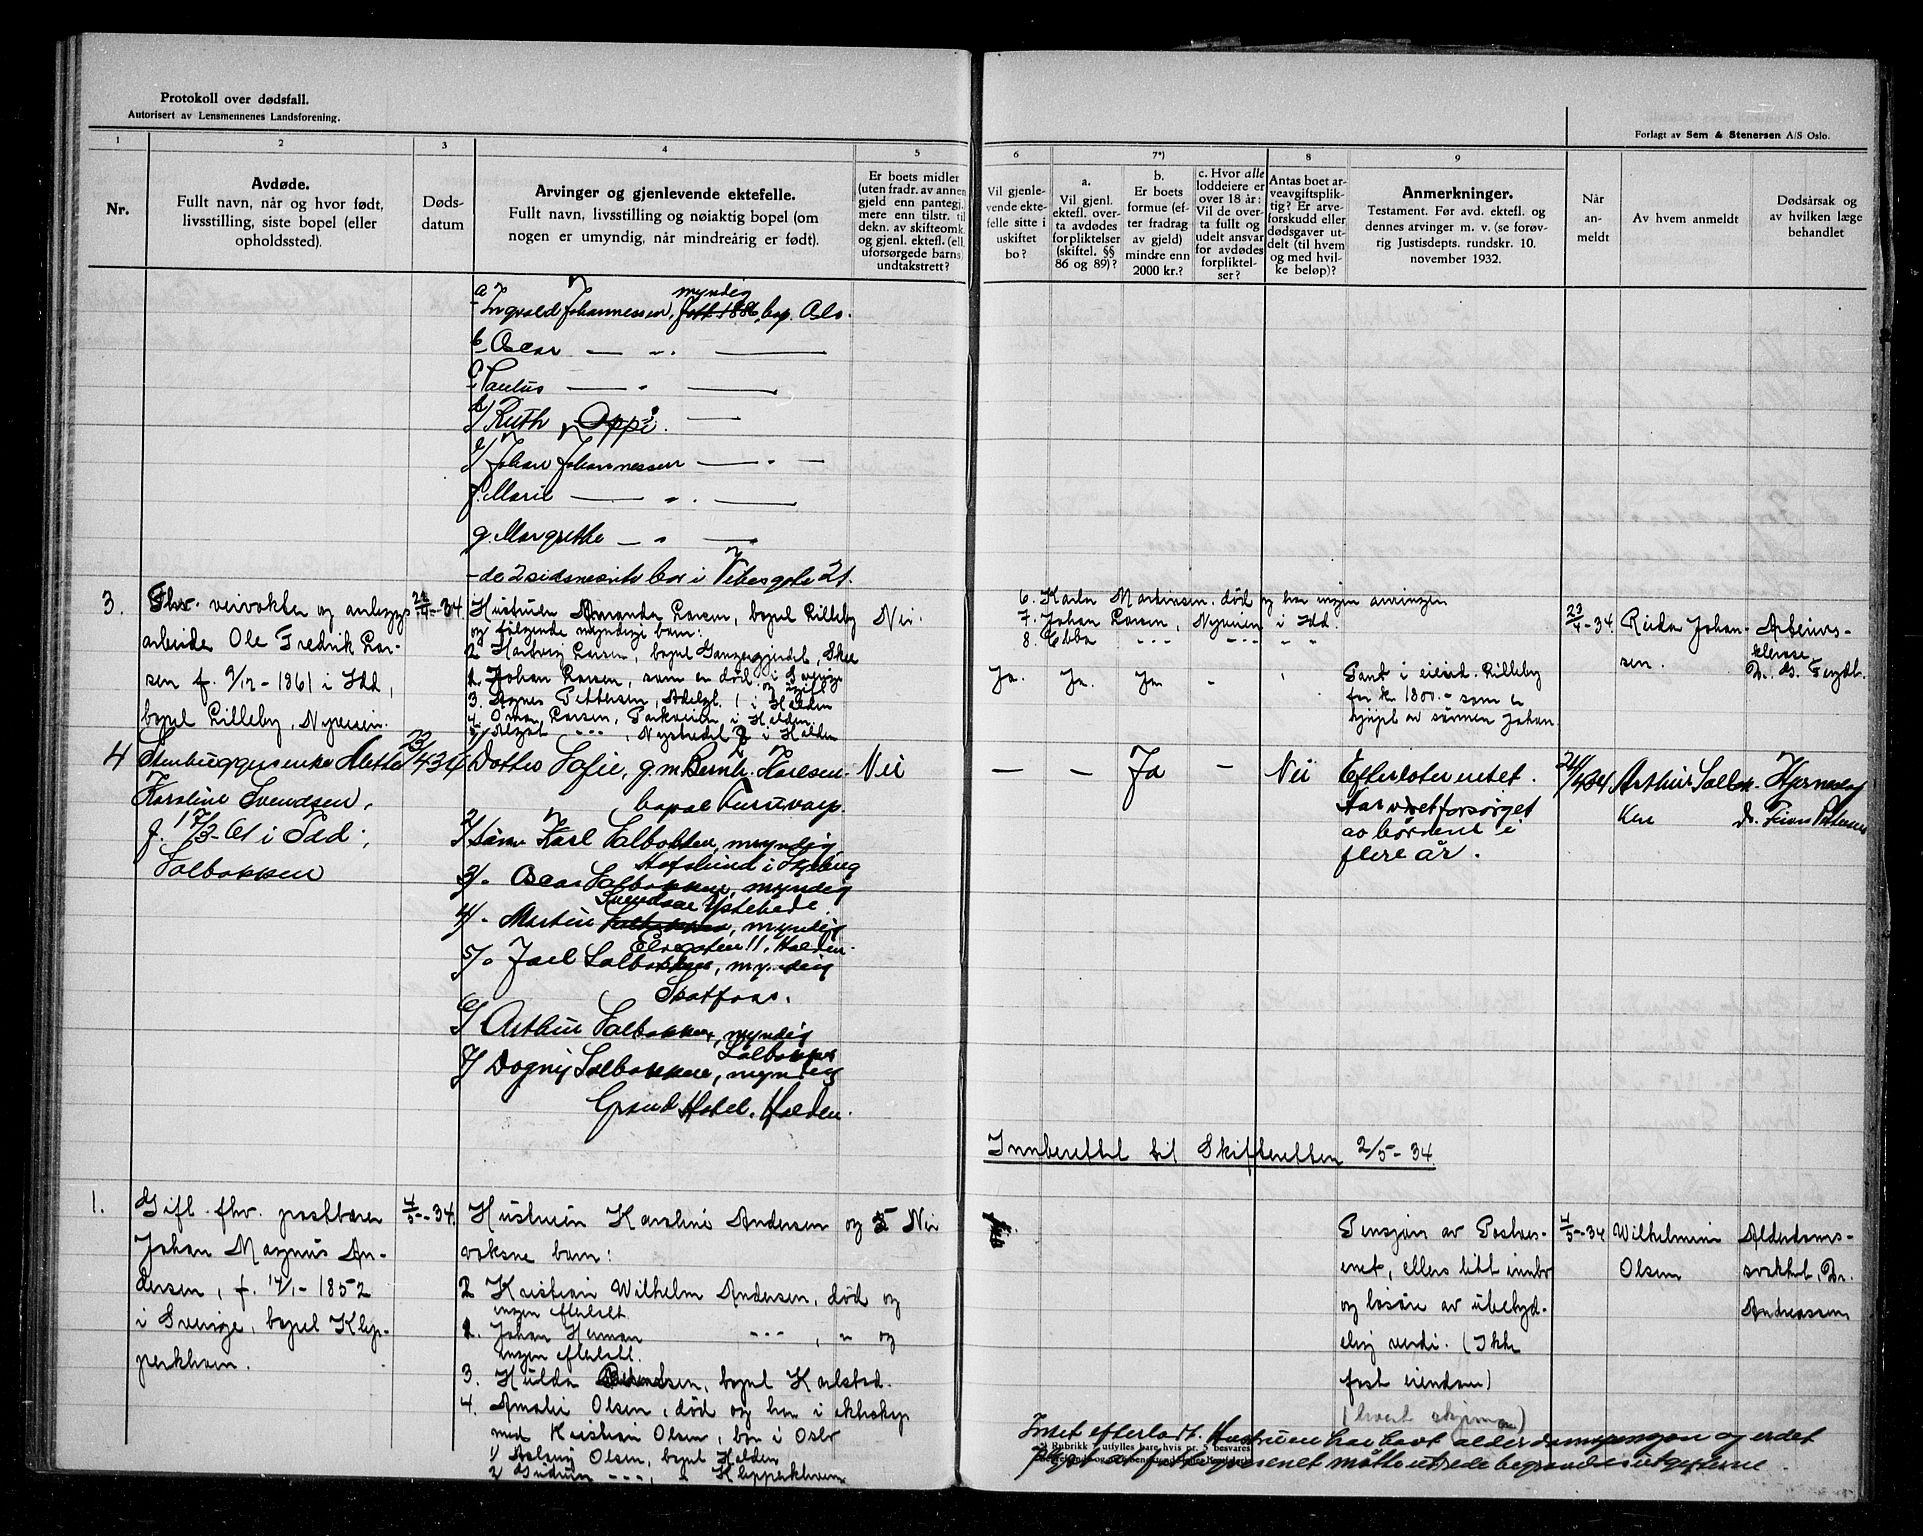 Protokoll over dødsfall.
Autorisert av Lensmennenes Landsforening.
Forlagt av Sem & Stenersen A/S Oslo.
1 2 3 4 5 6 7*) 8 9
Nr.
Avdøde.
Fullt navn, når og hvor født,
livsstilling, siste bopel (eller
opholdssted).
Døds-
datum
Arvinger og gjenlevende ektefelle.
Fullt navn, livsstilling og nøiaktig bopel (om
nogen er umyndig, når mindreårig er født).
Er boets midler
(uten fradr. av annen
gjeld enn pantegj.)
mere enn tilstr. til
dekn. av skifteomk.
og gjenl. ektef. (ell.
uforsørgede barns)
undtakstrett?
Vil gjenle-
vende ekte-
felle sitte i
uskiftet
bo?
a.
Vil gjenl.
ektef. over-
ta avdødes
forpliktelser
(skiftel. §§
86 og 89)?
b.
Er boets
formue (ef-
ter fradrag
av gjeld)
mindre enn
2000 kr.?
c. Hvor alle
loddeiere er
over 18 år:
Vil de over-
ta fullt og
udelt ansvar
for avdødes
forpliktel-
ser?
Antas boet ar-
veavgiftsplik-
tig? Er arve-
forskudd eller
dødsgaver ut-
delt (til hvem
og med hvil-
ke beløp)?
Anmerkninger.
Testament. Før avd. ektef. og
dennes arvinger m. v. (se forøv-
rig Justisdepts. rundskr. 10.
november 1932.
Når
an-
meldt
Av hvem anmeldt
Dødsårsak og
av hvilken læge
behandlet
a Ingvald Johannessen, myndig født 1886, bop. Oslo.
b Oscar — „ —
c Paulus — „ —
d/ Ruth, Oppi. —
e/ Johan Johannessen — „ —
f. Marie — „ —
g. Margrethe — „ —
- de 2 sidsnevnte bor i Vibesgate 21.
3. Fhv. veivokter og anleggs-
arbeide Ole Fredrik Lar-
sen f. 9/12 - 1861 i Idd,
bopel Lilleby, Nyveien.
Hustruen Amanda Larsen, bopel Lilleby
og følgende myndige barn:
Nei.
2. Johan Larsen, som er død i Sverige
3. Agnes Pettersen, Adelgt. 1 i Halden
4. Omar Larsen, Parkveien, i Halden.
6. Karla Martinsen, død og har ingen arvinger
7. Johan Larsen, Nyveien i Idd.
8. Ebba „ „ „
Ja. Ja. Ja - '
Pant i eiend. Lilleby
for kr. 1800.- som er
kjøpt av sønnen Johan.
23/4-34. Reidar Johan-
sen.
4 Stenhuggerenke Mette
Karoline Svendsen,
f. 17/3-61 i Idd;
Solbakken
23/4 34
Datter Sofie, g.m. Bernh. Karlsen
bopæl Furuvarp.
2/ Sønn Karl Solbakken, myndig
Hafslund i Skjeberg
3/ „ Oscar Solbakken, myndig
Svendsen Ystehede
4/ „ Martin Solbakken, myndig
Elvegaten 11. Halden.
5/ „ Joel Solbakken, myndig
Skotfoss.
6/ Arthur Solbakken, myndig
Solbakken
7/ Dagny Solbakken, myndig
Grand Hotel, Halden.
Nei
— — Ja — Nei
Efterlater intet.
Har vært forsørget
av børnene i
flere år.
24/4 34 Arthur Solbak-
ken
Hjerneslag
Innberettet til Skifteretten 2/5-34
1. Gift fhv. postbærer
Johan Magnus An-
dersen, f. 14/1-1852
i Sverige, bopel Klep-
perkhavn.
4/5-34.
Hustruen Karoline Andersen og 5
voksne barn:
Nei
2 Kristian Wilhelm Andersen, død og
ingen efterlatt.
Johan Herman „ , „ og
ingen efterlatt.
3. Hulda, bopel Karlstad.
4. Amalie Olsen, død og har i ekteskap
med Kristian Olsen, bor i Oslo
1/ Aslaug Olsen, bopel Halden
2 Gudrun „ , „ Klepperkhavn
Pensjon av Postves-
enet, ellers litt innbo
og løsøre av ubetyd-
elig verdi. (Ikke
fast eiendom)
4/5-34 Wilhelmine
Olsen
Alderdoms-
svakhet, Dr.
Andreassen
Intet efterlatt. Hustruen har havt alderdomspensjon og er det
*) Rubrikk 7 utfylles bare hvis nr. 5 besvares
fattigvesenet måtte utrede begravelsesutgiftene.